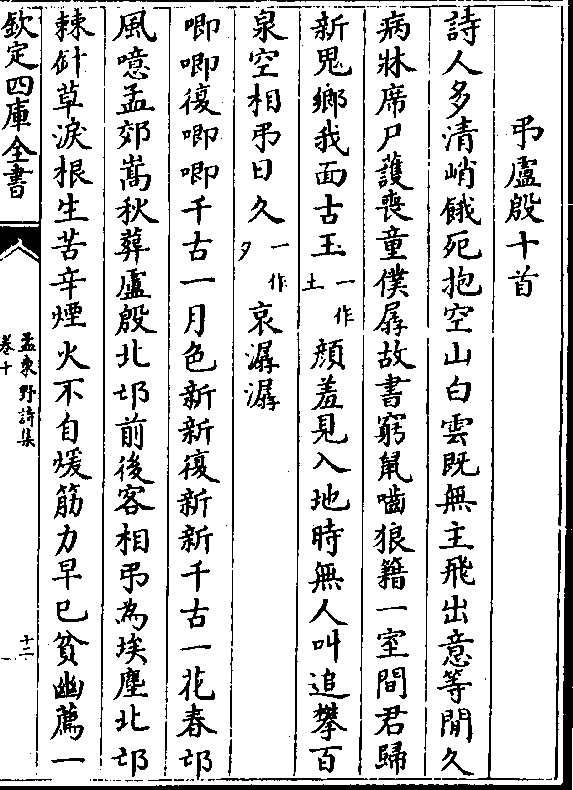 弔盧殷十首
詩人多清峭餓死抱空山白雲既無主飛出意等閒久
病牀席尸護喪童僕孱故書窮鼠嚙狼籍一室間君歸
新鬼鄉我面古玉一作土顔羞見入地時無人叫追攀百
泉空相弔日久一作夕哀潺潺
唧唧復唧唧千古一月色新新復新新千古一花春邙
風噫孟郊嵩秋葬盧殷北邙前後客相弔為埃塵北邙
棘針草淚根生苦辛煙火不自煖筋力早已貧幽薦一
欽定四庫全書
孟東野詩集
卷十
十二